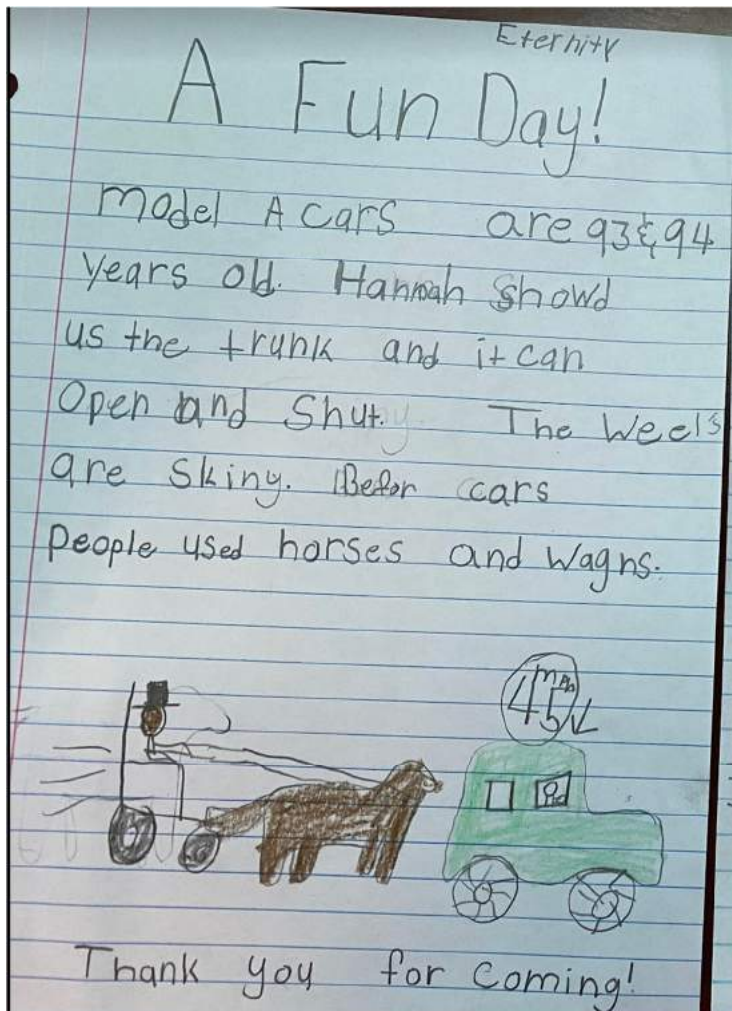 Eternity
A Fun Day!
Model A cars are 93 & 94
years old. Hannah showd
us the trunk and it can
Open and Shut. The Weels
are Skiny. Befor cars
People used horses and wagns.
45 mph
Thank you for coming!